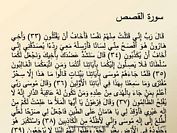 سورة القصص
قَالَ رَبِّ إِنِّي قَتَلْتُ مِنْهُمْ نَفْسًا فَأَخَافُ أَنْ يَقْتُلُونِ (٣٣) وَأَخِي
هَارُونُ هُوَ أَفْصَحُ مِنِّي لِسَانًا فَأَرْسِلْهُ مَعِيَ رِدْءًا يُصَدِّقُنِي إِنِّي
أَخَافُ أَنْ يُكَذِّبُونِ (٣٤) قَالَ سَنَشُدُّ عَضُدَكَ بِأَخِيكَ وَنَجْعَلُ لَكُمَا
سُلْطَانًا فَلَا يَصِلُونَ إِلَيْكُمَا بِآيَاتِنَا أَنْتُمَا وَمَنِ اتَّبَعَكُمَا الْغَالِبُونَ
(٣٥) فَلَمَّا جَاءَهُمْ مُوسَى بِآيَاتِنَا بَيِّنَاتٍ قَالُوا مَا هَذَا إِلَّا سِحْرٌ
مُفْتَرًى وَمَا سَمِعْنَا بِهَذَا فِي آبَائِنَا الْأَوَّلِينَ (٣٦) وَقَالَ مُوسَى رَبِّي
أَعْلَمُ بِمَنْ جَاءَ بِالْهُدَى مِنْ عِنْدِهِ وَمَنْ تَكُونُ لَهُ عَاقِبَةُ الدَّارِ إِنَّهُ
لَا يُفْلِحُ الظَّالِمُونَ (٣٧) وَقَالَ فِرْعَوْنُ يَا أَيُّهَا الْمَلَأُ مَا عَلِمْتُ لَكُمْ مِنْ
إِلَهٍ غَيْرِي فَأَوْقِدْ لِي يَا هَامَانُ عَلَى الطِّينِ فَاجْعَلْ لِي صَرْحًا لَعَلِّي